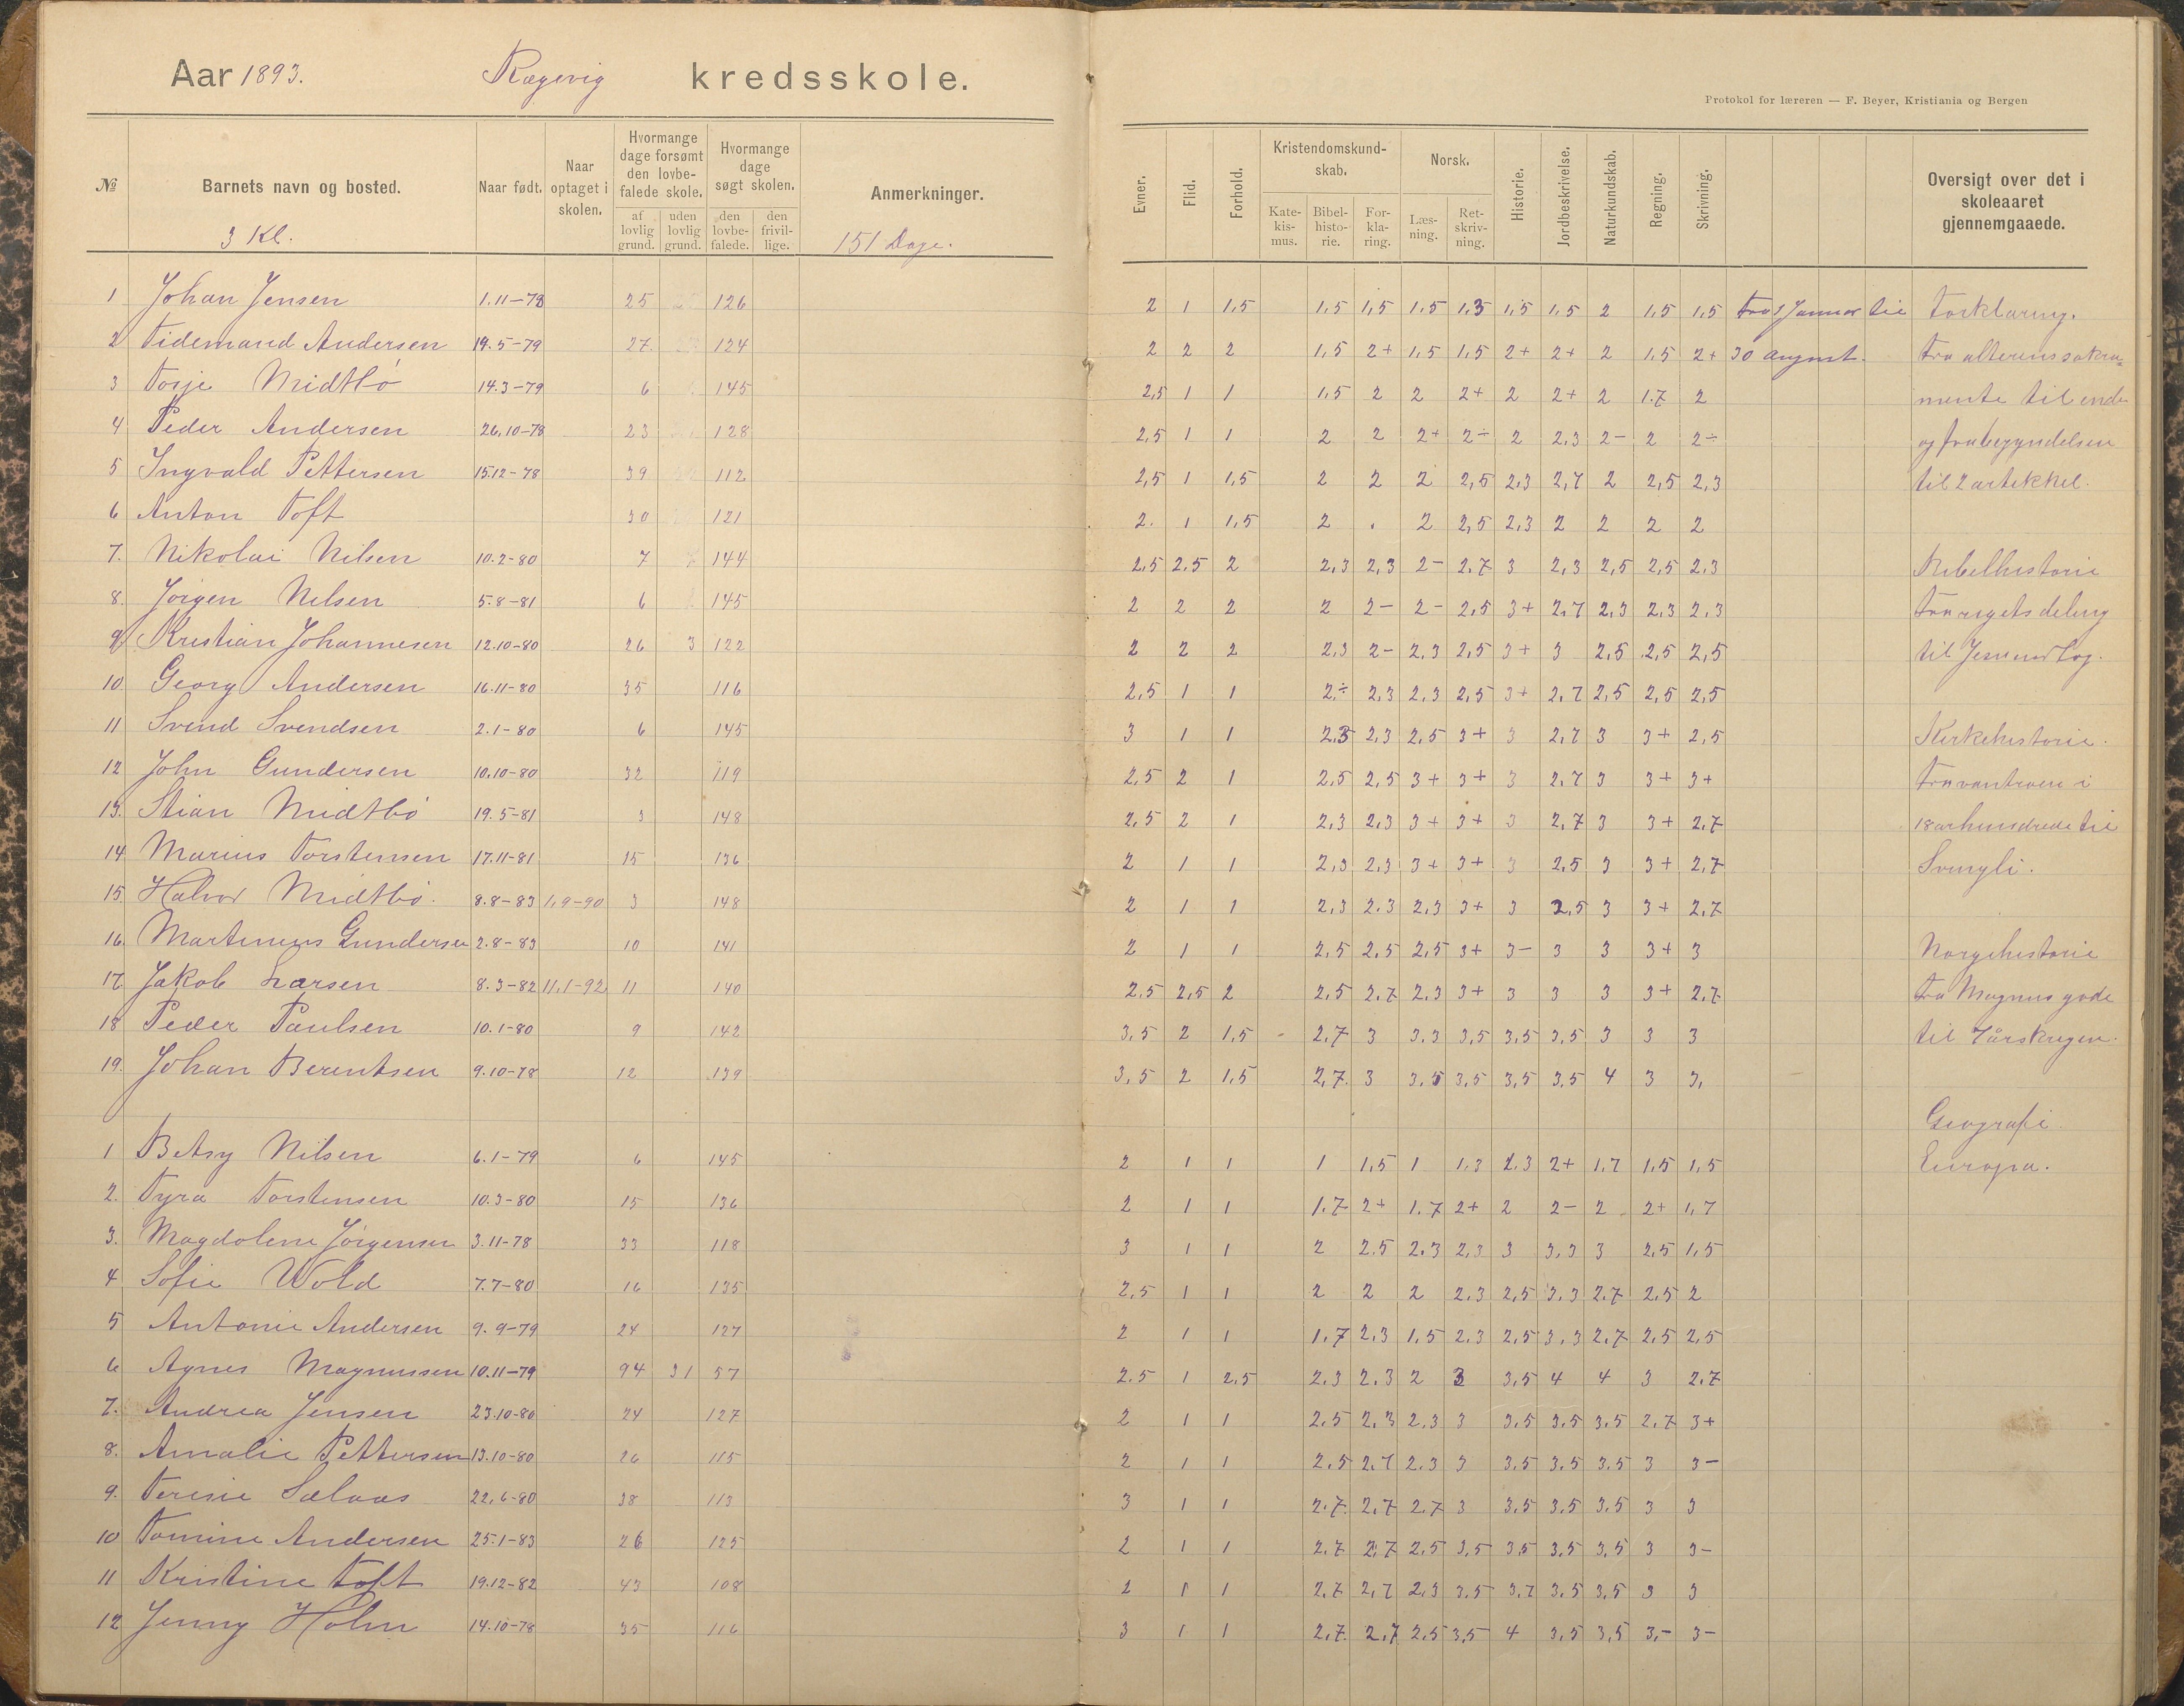 Aar 1893. Rægevig kredsskole.
Protokol for læreren — F. Beyer, Kristiania og Bergen
№ Barnets navn og bosted. Naar født. Naar optaget i skolen. Hvormange dage forsømt den lovbefalede skole. af lovlig grund. uden lovlig grund. Hvormange dage søgt skolen. den lovbefalede. den frivillige. Anmerkninger.
Evner. Flid. Forhold. Kristendomskundskab. Katekismus. Bibelhistorie. Forklaring. Norsk. Læsning. Retskrivning. Historie. Jordbeskrivelse. Naturkundskab. Regning. Skrivning. Oversigt over det i skoleaaret gjennemgaaede.
3 Kl. 151 Dage.
1 Johan Jensen 1.11-78 25 126 2 1 1,5 1,5 1,5 1.5 1.3 1,5 1,5 2 1,5 1,5 fra 1 Januar til Forklaring.
2 Tidemand Andersen 19.5-79 27. 124 2 2 2 1,5 2+ 1,5 1,5 2+ 2+ 2 1,5 2+ 30 august. fra alterens sakra-
3 Torje Midtbö 14.3-79 6 145 2,5 1 1 1,5 2 2 2+ 2 2+ 2 1.7 2 mente til ende
4 Peder Andersen 26.10-78 23 128 2,5 1 1 2 2 2+ 2÷ 2 2,3 2- 2 2÷ og fra begyndelsen
5 Ingvald Pettersen 15.12-78 39 112 2,5 1 1,5 2 2 2 2,5 2.3 2,7 2 2,5 2,3 til 2 artikkel.
6 Anton Toft 30 121 2. 1 1,5 2 . 2 2,5 2,3 2 2 2 2
7. Nikolai Nilsen 10.2-80 7 144 2,5 2.5 2 2,3 2,3 2- 2.7 3 2,3 2,5 2,5 2.3 Bibelhistorie
8. Jörgen Nilsen 5.8-81 6 145 2 2 2 2 2- 2- 2,5 3+ 2.7 2,3 2,3 2,3 fra rigets deling
9 Kristian Johannesen 12.10-80 26 3 122 2 2 2 2,3 2- 2,3 2,5 3+ 3 2,5 2,5 2,5 til Jesu
10 Georg Andersen 16.11-80 35 116 2,5 1 1 2÷ 2,3 2,3 2,5 3+ 2,7 2,5 2,5 2,5
11 Svend Svendsen 2.1-80 6 145 3 1 1 2.3 2,3 2,5 3+ 3 2,7 3 3+ 2,5 Kirkehistorie.
12 John Gundersen 10.10-80 32 119 2,5 2 1 2,5 2,5 3+ 3+ 3 2.7 3 3+ 3+ fra vantroen i
13. Stian Midtbö 19.5-81 3 148 2,5 2 1 2,3 2,3 3+ 3+ 3 2,7 3 3+ 2,7 18 århundrede til
14 Marius Torstensen 17.11-81 15 136 2 1 1 2,3 2,3 3+ 3+ 3 2,5 3 3+ 2,7 Svingli.
15 Halvor Midtbö. 8.8-83 1.9-90 3 148 2 1 1 2,3 2.3 2,3 3+ 3 2,5 3 3+ 2,7
16 Martinius Gundersen 2.8-83 10 141 2 1 1 2,5 2,5 2,5 3+ 3- 3 3 3+ 3 Norgehistorie
17 Jakob Larsen 8.3-82 11.1-92 11 140 2,5 2,5 2 2,5 2.7 2,3 3+ 3 3 3 3+ 2.7 fra Magnus gode
18 Peder Paulsen 10.1-80 9 142 3,5 2 1,5 - 2,7 3 3.3 3,5 3,5 3,5 3 3 3 til 7årskrigen.
19. Johan Berentsen 9.10-78 12 139 3,5 2 1,5 2,7. 3 3.5 3,5 3,5 3,5 4 3 3,
Geografi.
1 Betsy Nilsen 6.1-79 6 145 2 1 1 1 1,5 1 1.3 2.3 2+ 1.7 1,5 1,5 Europa.
2. Tyra Torstensen 10.3-80 15 136 2 1 1 1.7 2+ 1.7 2+ 2 2- 2 2+ 1,7
3. Magdolene Jörgensen 3.11-78 33 118 3 1 1 2 2.5 2.3 2,3 3 3,3 3 2,5 1,5
4 Sofie Wold 7.7-80 16 135 2,5 1 1 2 2 2 2.3 2,5 3.3 2.7 2.5 2
5 Antonie Andersen 9.9-79 24 127 2 1 1 1,7 2,3 1,5 2,3 2,5 3,3 2,7 2,5 2,5
6 Agnes Magnussen 10.11-79 94 31 57 2.5 1 2,5 2,3 2.3 2 3 3,5 4 4 3 2.7
7. Andrea Jensen 23.10-80 24 127 2 1 1 2,5 2,3 2,3 3 3,5 3,5 3,5 2,7 3+
8. Amalie Pettersen 13.10-80 26 115 2 1 1 2,5 2.7 2.3 3 3.5 3.5 3.5 3 3-
9. Terese Sælaas 22.6-80 38 113 3 1 1 2.7. 2,7 2.7 3 3,5 3,5 3,5 3 3
10 Tomine Andersen 25.1-83 26 125 2 1 1 2.7 2,7 2,5 3,5 3,5 3,5 3,5 3 3-
11 Kristine Toft 19.12-82 43 108 2 1 1 2.7 2,7 2,3 3,5 3,7 3,5 3,5 3 3
12 Jenny Holm 14.10-78 35 116 3 1 1 2,7. 2,7 2.5 3,5 4 3,5 3,5 3,- 3-